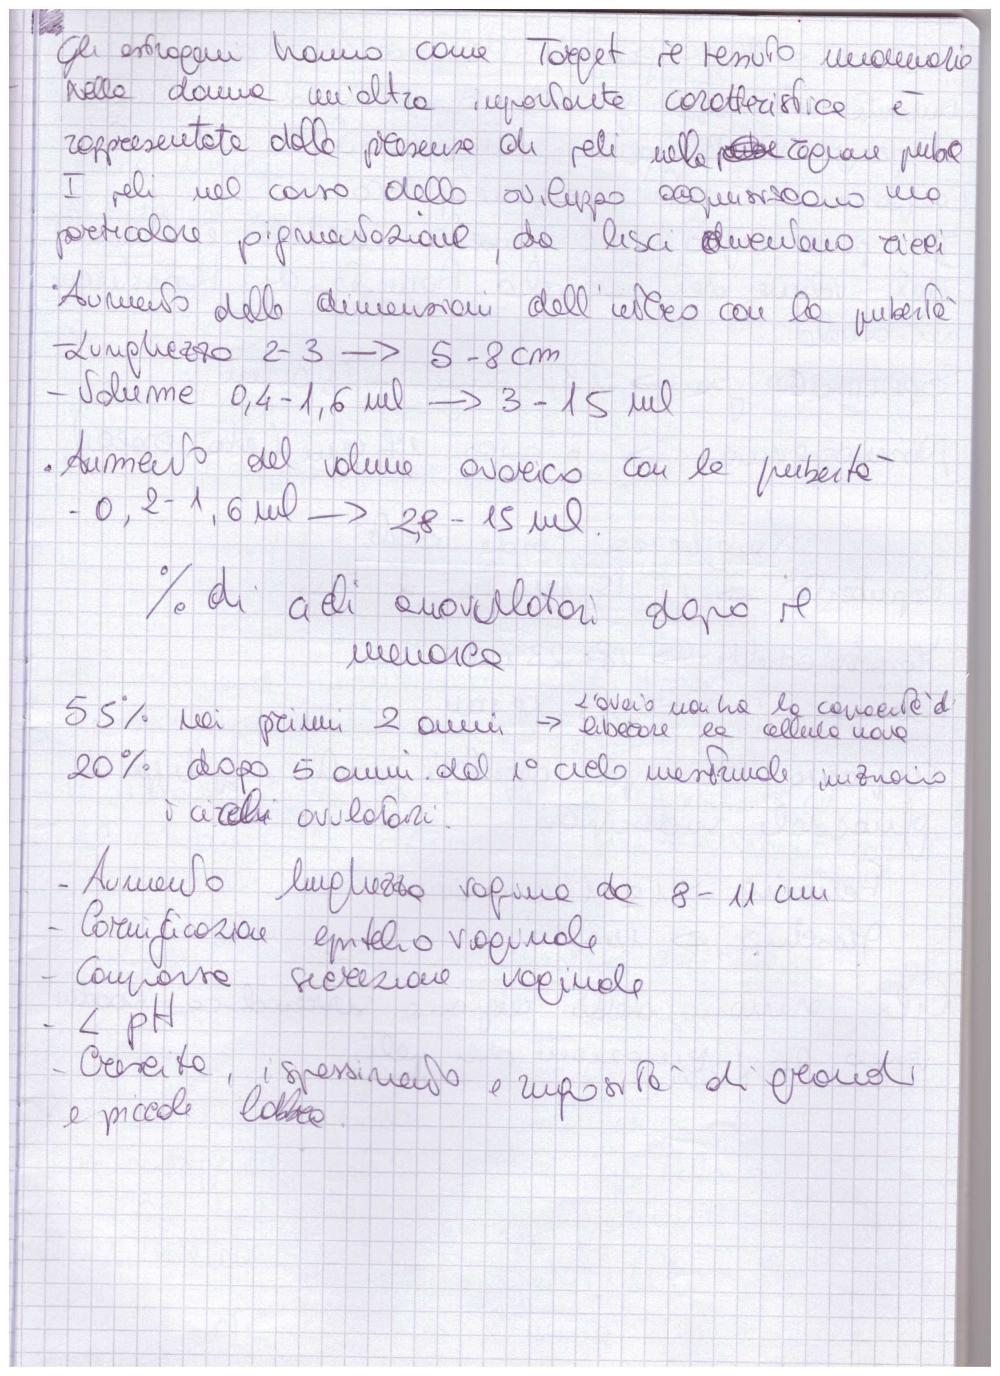 Gli estrogeni hanno come Target il tessuto mammario
Nella donna un'altra importante caratteristica è
rappresentata dalla presenza di peli nella regione pube
I peli nel corso dello sviluppo acquisiscono una
particolare pigmentazione, da lisci diventano ricci
· Aumento delle dimensioni dell'utero con la pubertà
- Lunghezza 2-3 → 5-8 cm
- Volume 0,4-1,6 ml → 3-15 ml
· Aumento del volume ovarico con la pubertà
- 0,2-1,6 ml → 2,8-15 ml.
% di cicli anovulatori dopo il
menarca
55% nei primi 2 anni → L'ovaio non ha la capacità di
liberare la cellula uovo
20% dopo 5 anni dal 1° ciclo mestruale iniziano
i cicli ovulatori.
- Aumento lunghezza vagina da 8-11 cm
- Cornificazione epitelio vaginale
- Comparsa secrezione vaginale
- < pH
- Crescita, ispessimento e rugosità di grandi
e piccole labbra.